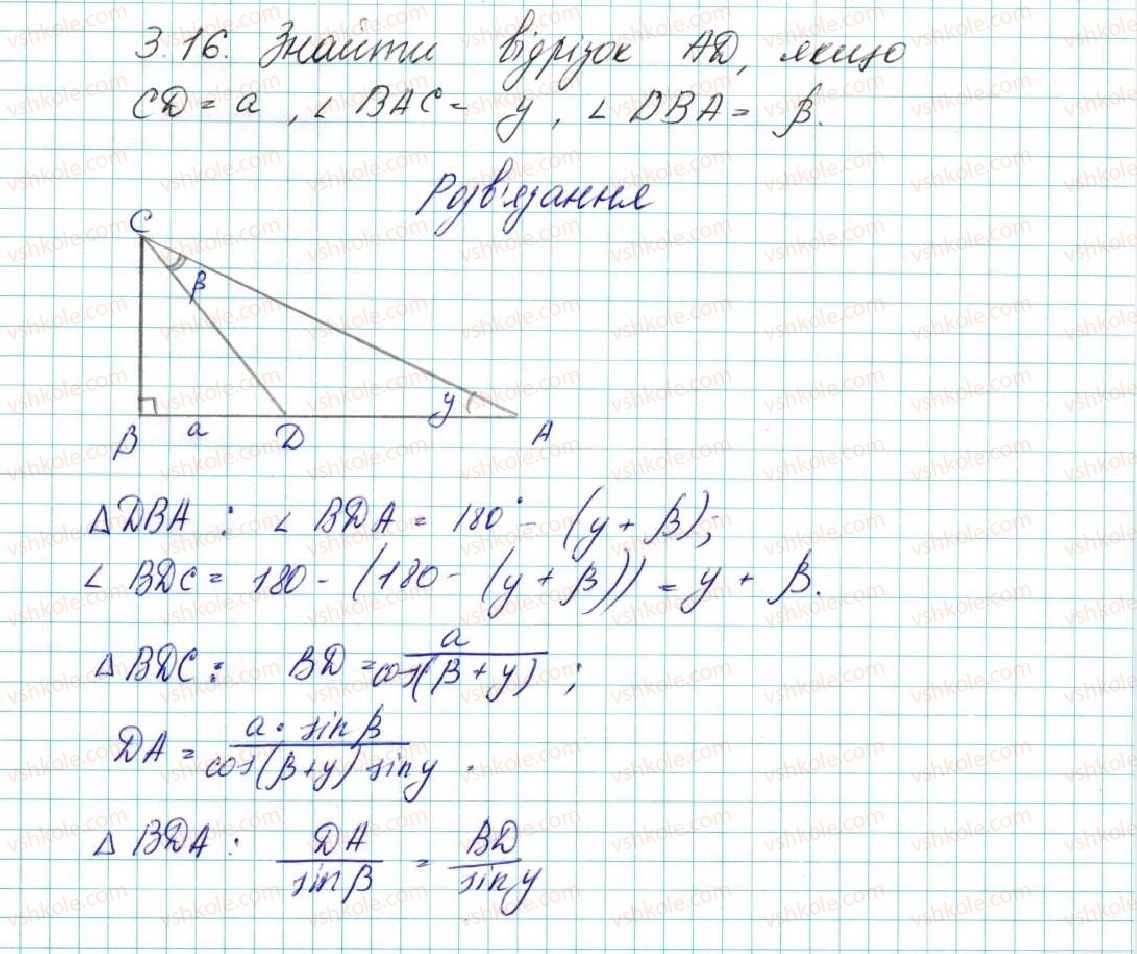 3.16. Знайти відрізок AD, якщо
CD = a, ∠ BAC = y, ∠ DBA = β.
Розв'язання
C
β
y
B a D A
△DBA : ∠ BDA = 180° - (y + β);
∠ BDC = 180 - (180 - (y + β)) = y + β.
△ BDC : BD = a / cos(β + y) ;
DA = a · sin β / cos(β+y) sin y .
△ BDA : DA / sin β = BD / sin y